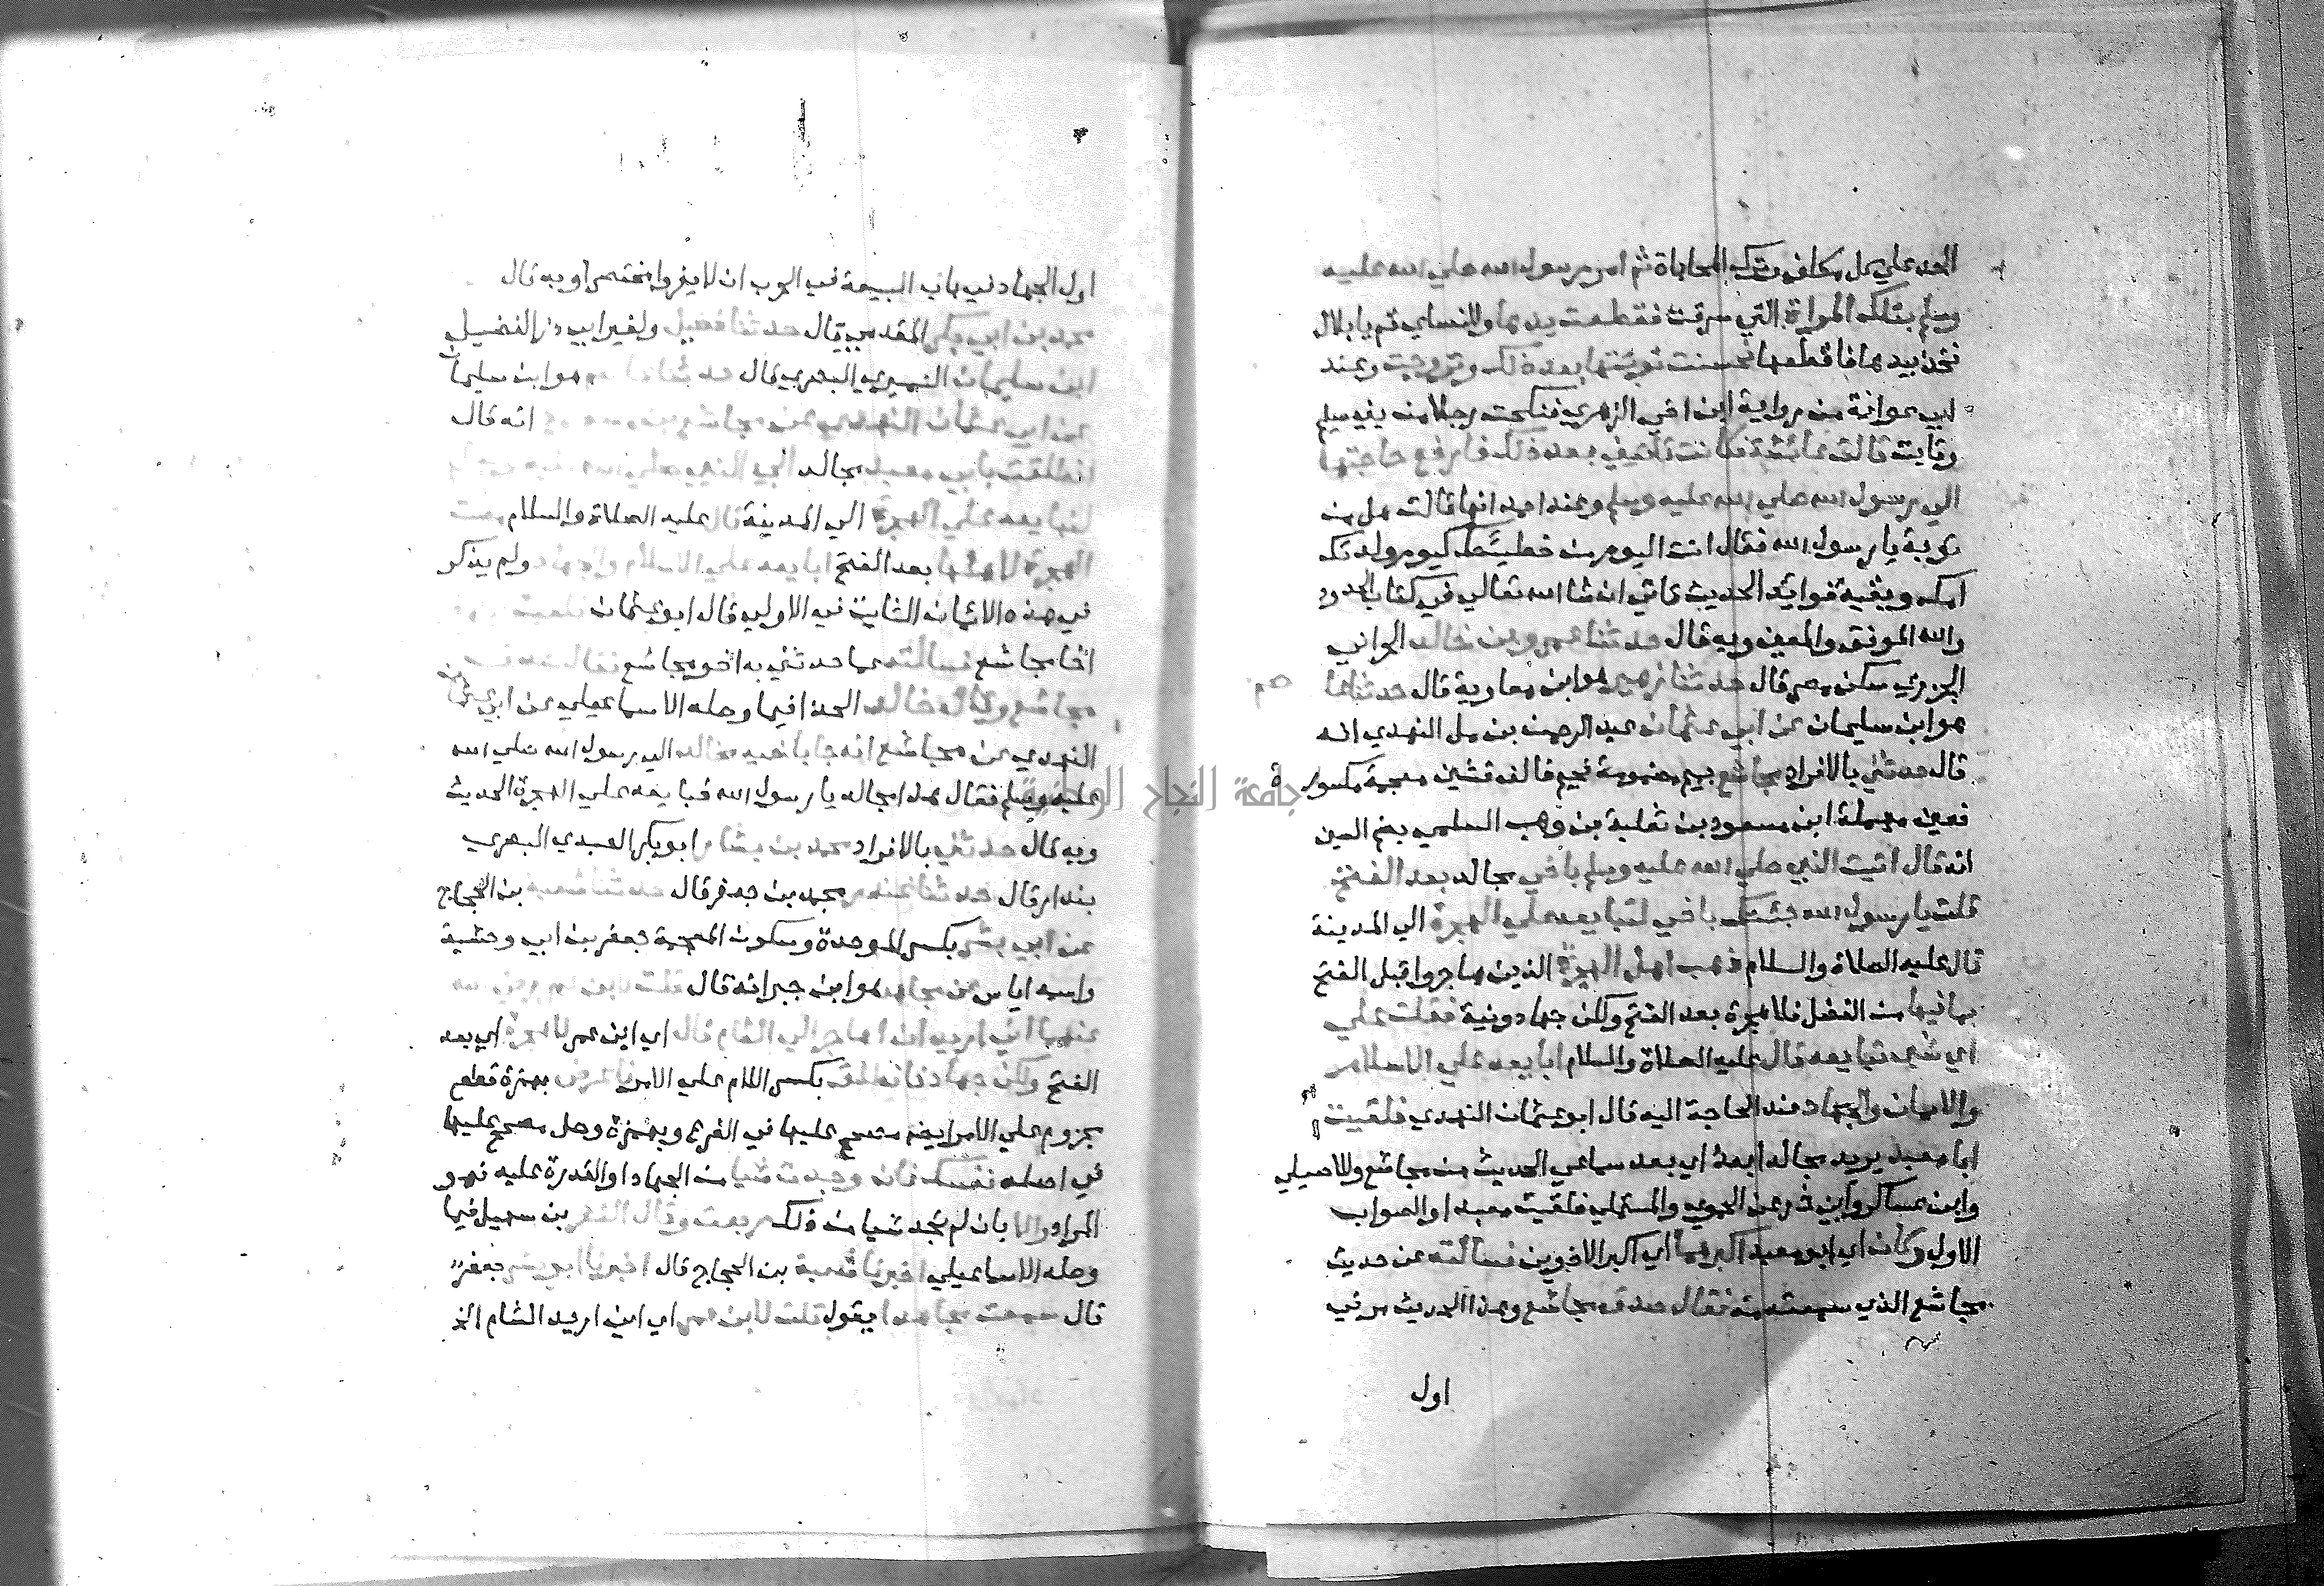 الحد علي كل مكلف وترك المحاباة ثم امر رسول الله صلي الله عليه
وسلم بتلك المراة التي سرقت فقطعت يدها وللنساي قم يا بلال
فخذ بيدها فاقطعها فحسنت توبتها بعد ذلك وتزوجت وعند
ابي عوانة من رواية ابن اخي الزهري فنكحت رجلا من بني سليم
وتابت قالت عائشة فكانت تاتيني بعد ذلك فارفع حاجتها
الي رسول الله صلي الله عليه وسلم وعند احمد انها قالت هل من
توبة يا رسول الله فقال انت اليوم من خطيئتك كيوم ولدتك
امك وبقية فوائد الحديث تاتي ان شا الله تعالي في كتاب الحدود
والله الموفق والمعين وبه قال حدثنا عمرو بن خالد الحراني
الجزري سكن مصر قال حدثنا زهير هو ابن معاوية قال حدثنا عا
صم
هو ابن سليمان عن ابي عثمان عبد الرحمن بن مل النهدي انه
قال حدثني بالافراد مجاشع بميم مضمومة فجيم فالف فشين معجمة مكسورة
فعين مهملة ابن مسعود بن ثعلبة بن وهب السلمي بضم السين
انه قال اتيت النبي صلي الله عليه وسلم باخي مجالد بعد الفتح
قلت يا رسول الله جئتك باخي لتبايعه علي الهجرة الي المدينة
قال عليه الصلاة والسلام ذهب اهل الهجرة الذين هاجروا قبل الفتح
بما فيها من الفضل فلا هجرة بعد الفتح ولكن جهاد ونية فقلت علي
اي شي تبايعه قال عليه الصلاة والسلام ابايعه علي الاسلام
والايمان والجهاد عند الحاجة اليه قال ابو عثمان النهدي فلقيت
ابا معبد يريد مجالدا بعد اي بعد سماعي الحديث من مجاشع وللاصيلي
وابن عساكر وابي ذر عن الحموي والمستملي فلقيت معبدا والصواب
الاول وكان اي ابو معبد اكبرهما اي اكبر الاخوين فسالته عن حديث
مجاشع الذي سمعته منه فقال صدق مجاشع وهذا الحديث مر في
اول
اول الجهاد في باب البيعة في الحرب ان لا يفروا مختصرا وبه قال
محمد بن ابي بكر المقدمي قال حدثنا فضيل ولغير ابي ذر الفضيل
ابن سليمان النميري البصري قال حدثنا عاصم هو ابن سليمان
عن ابي عثمان النهدي عن مجاشع بن مسعود انه قال
انطلقت بابي معبد مجالد الي النبي صلي الله عليه وسلم
ليبايعه علي الهجرة الي المدينة قال عليه الصلاة والسلام مضت
الهجرة لاهلها بعد الفتح ابايعه علي الاسلام والجهاد ولم يذكر
في هذه الايمان الثابت في الاولي قال ابو عثمان فلقيت
اخا مجاشع فسالته عما حدثني به اخوه مجاشع فقال صدق
مجاشع وقال خالد الحذا فيما وصله الاسماعيلي عن ابي عثمان
النهدي عن مجاشع انه جا باخيه مجالد الي رسول الله صلي الله
عليه وسلم فقال هذا مجالد يا رسول الله فبايعه علي الهجرة الحديث
وبه قال حدثني بالافراد محمد بن بشار ابو بكر العبدي البصري
بندار قال حدثنا غندر محمد بن جعفر قال حدثنا شعبة بن الحجاج
عن ابي بشر بكسر الموحدة وسكون المعجمة جعفر بن ابي وحشية
واسمه اياس عن مجاهد هو ابن جبر انه قال قلت لابن عمر رضي الله
عنهما اني اريد ان اهاجر الي الشام قال اي ابن عمر لا هجرة اي بعد
الفتح ولكن جهاد فانطلق بكسر اللام علي الامر فاعرض بهمزة قطع
مجزوم علي الامر ايضا مصحح عليها في الفرع وبهمزة وصل مصحح عليها
في اصله نفسك فان وجدت شيا من الجهاد او القدرة عليه فهو
المراد والا بان لم تجد شيا من ذلك رجعت وقال النضر بن سهيل فيما
وصله الاسماعيلي اخبرنا شعبة بن الحجاج قال اخبرنا ابو بشر جعفر
قال سمعت مجاهدا يقول قلت لابن عمر اي اني اريد الشام الخ
جامعة النجاح الوطنية